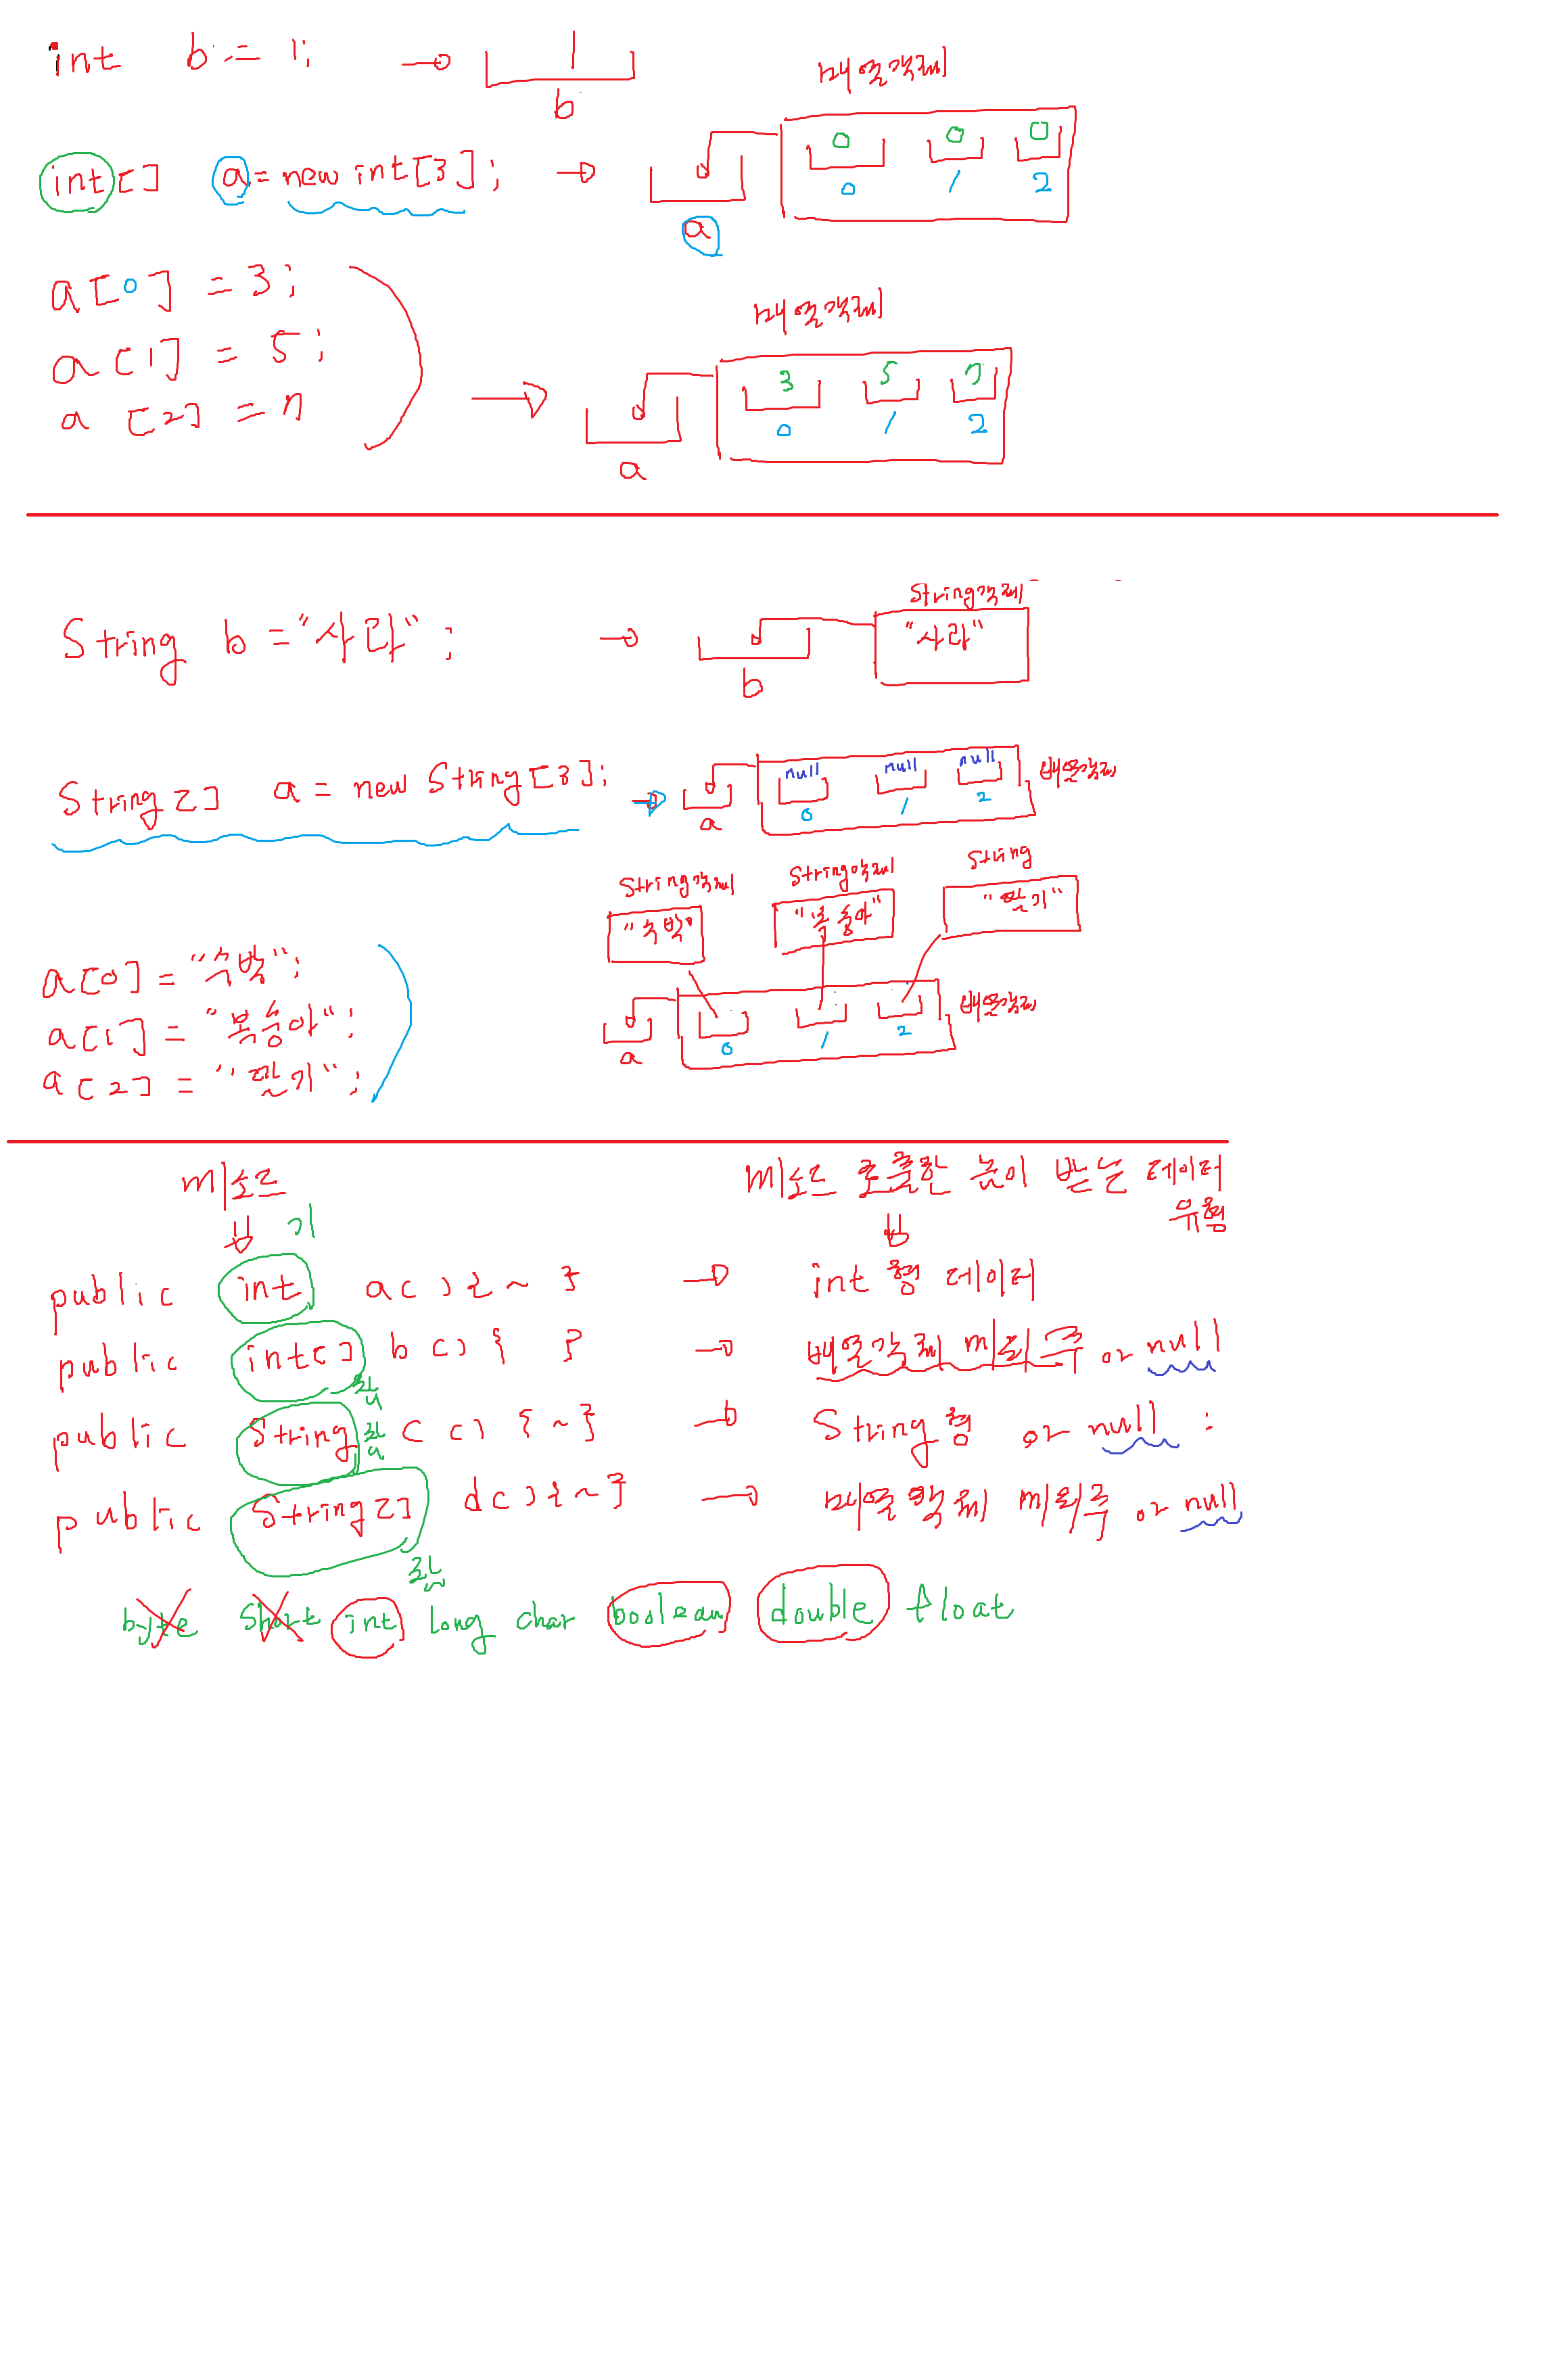 int b = 1; → 1
b
배열객체
int[] a = new int[3]; → 0 0 0
a 0 1 2
a[0] = 3;
a[1] = 5;
a[2] = 7
배열객체
→ 3 5 7
a 0 1 2
String b = "사라"; → "사라"
String객체
b
String[] a = new String[3]; → null null null 배열객체
a 0 1 2
String객체 String객체 String
"수박" "복숭아" "딸기"
a[0] = "수박";
a[1] = "복숭아";
a[2] = "딸기";
배열객체
a 0 1 2
m소드 m소드 호출한 놈이 받는 데이터
유형
기
public int a(){~} → int형 데이터
public int[] b(){ } → 배열객체 m리주 or null
public String c(){~} → String형 or null
public String[] d(){~} → 배열객체 m리주 or null
byte short int long char boolean double float